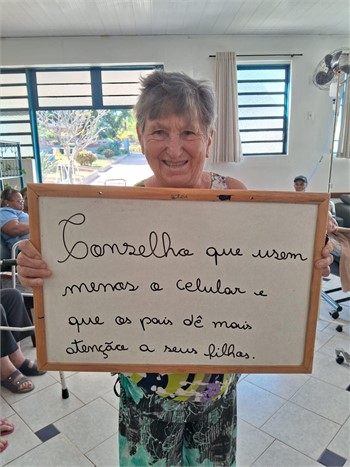 Conselho que usem
menos o celular e
que os pais dê mais
atenção a seus filhos.